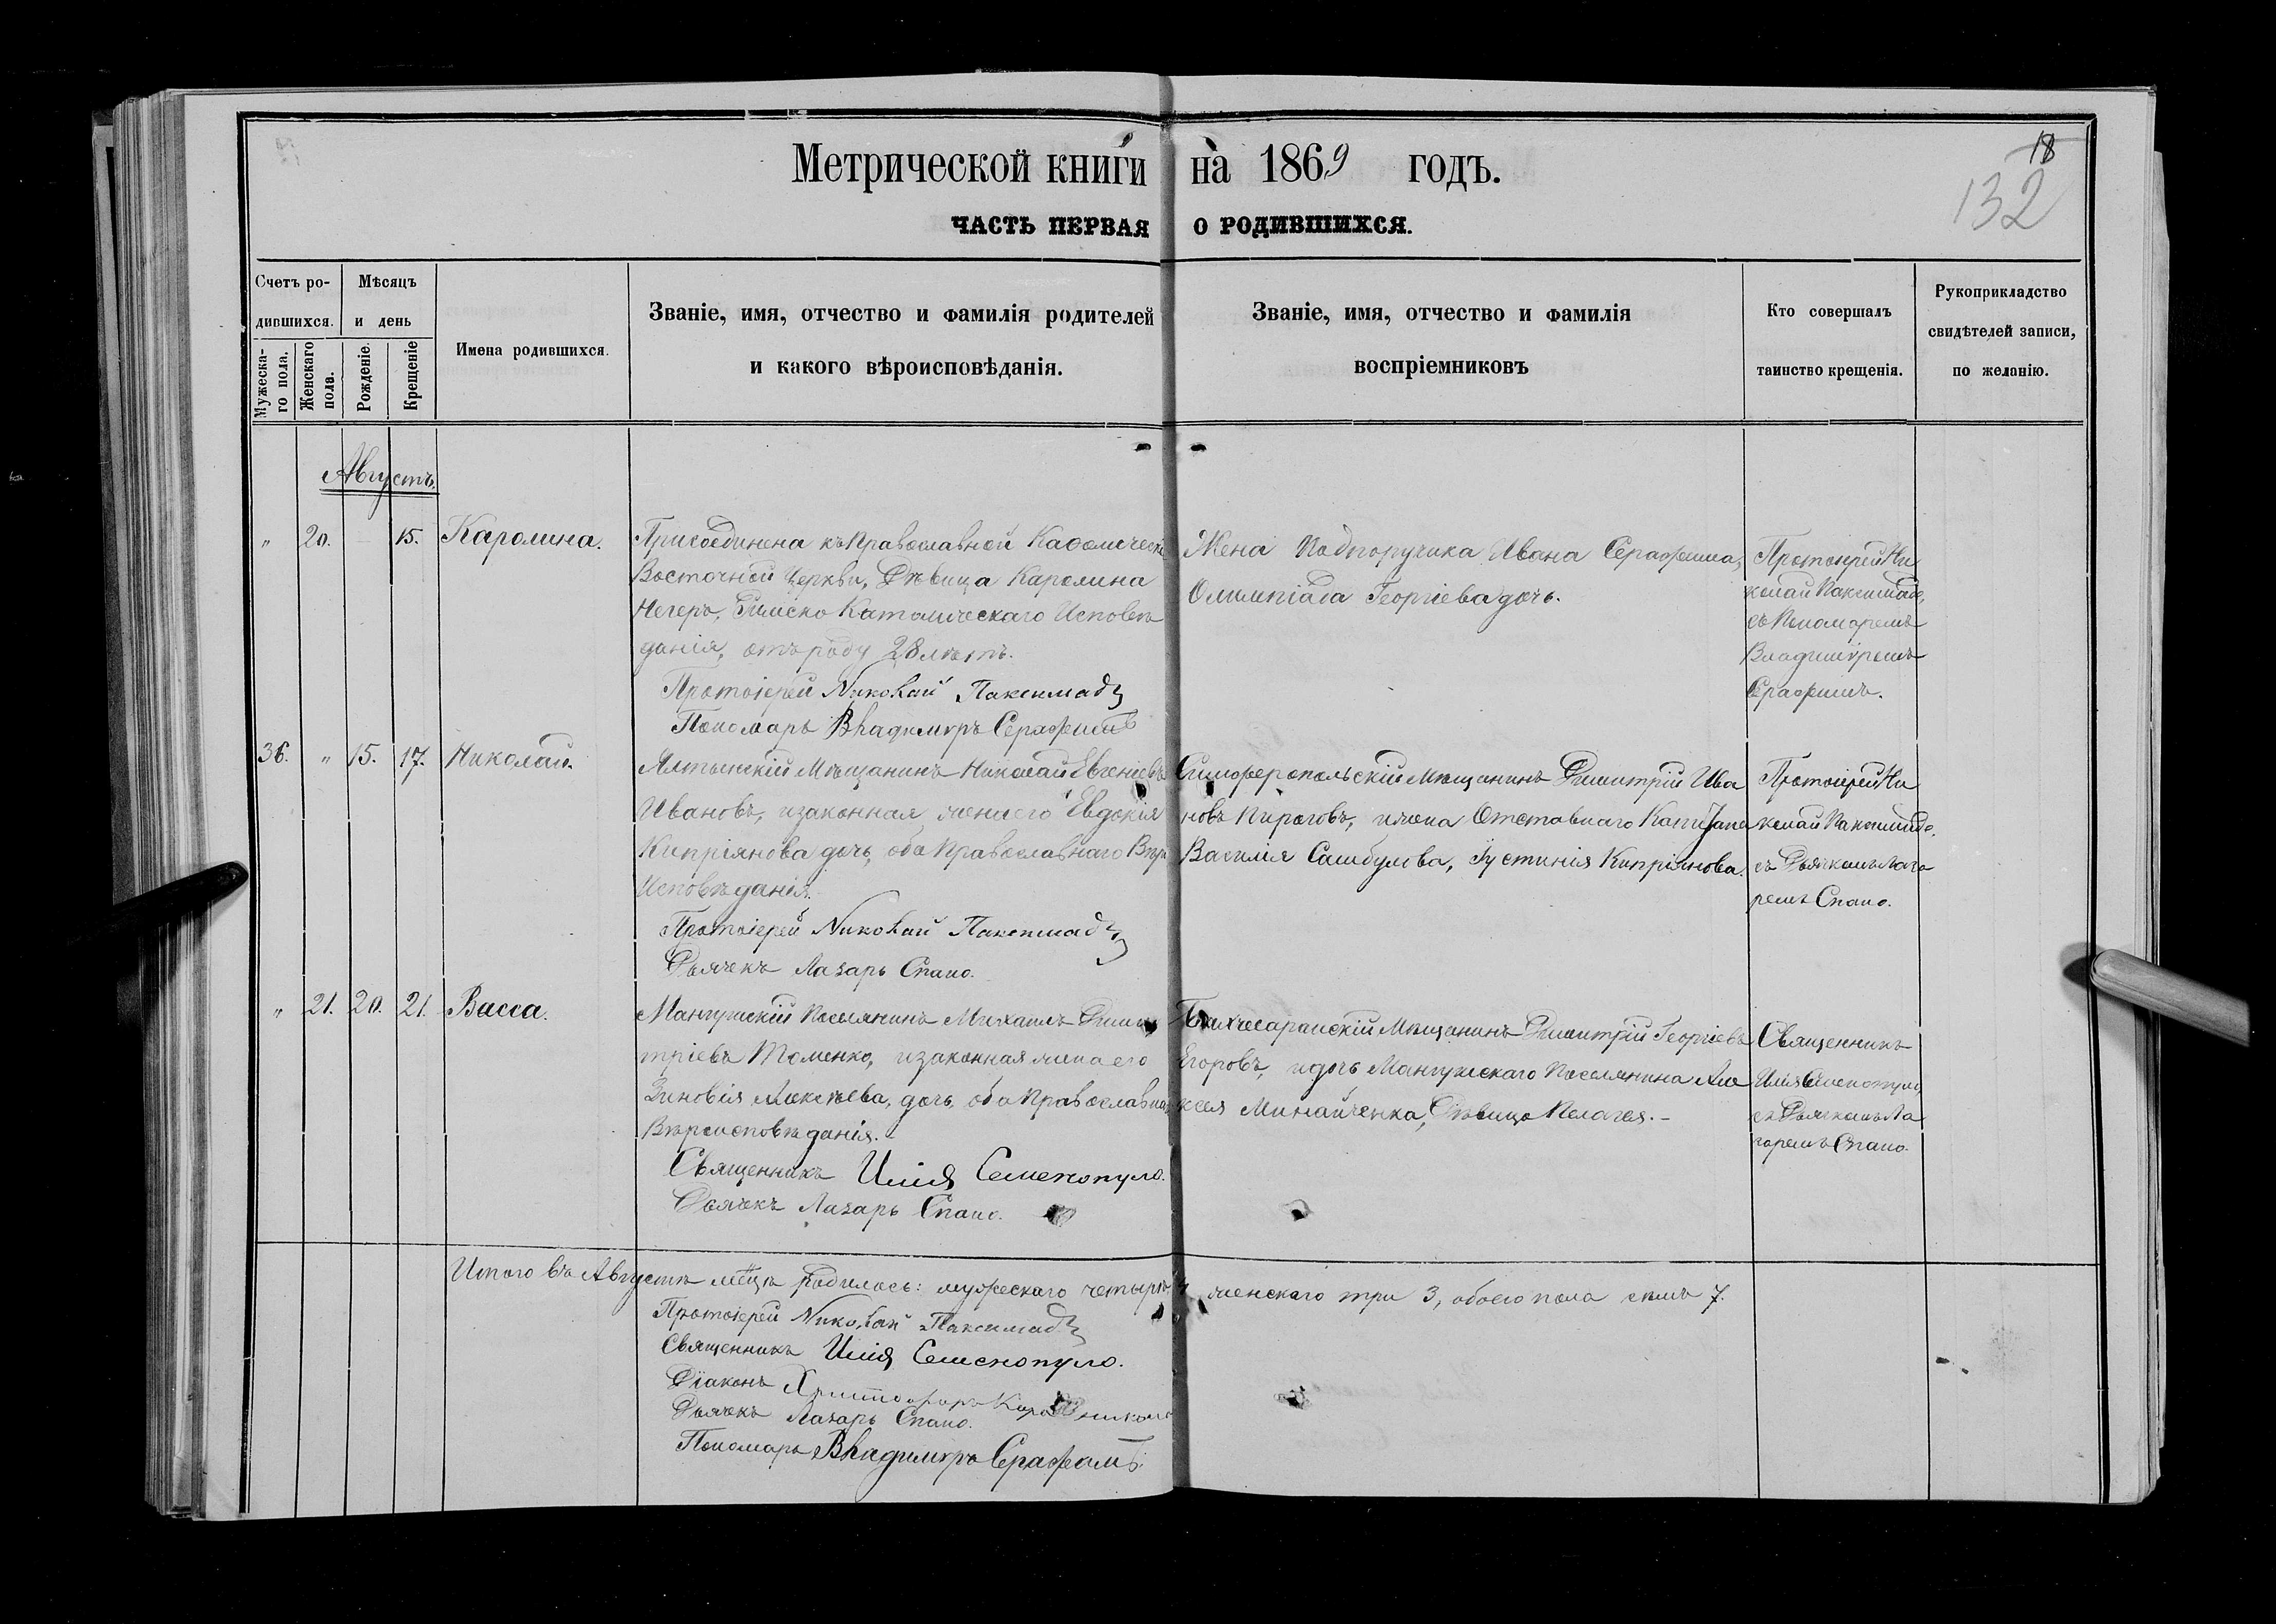 18
132
Метрической книги на 1869 годъ.
ЧАСТЬ ПЕРВАЯ О РОДИВШИХСЯ.
Счетъ ро-
дившихся.
Мужеска-
го пола.
Женскаго
пола.
Мѣсяцъ
и день
Рожденіе.
Крещеніе
Имена родившихся.
Званіе, имя, отчество и фамилія родителей
и какого вѣроисповѣданія.
Званіе, имя, отчество и фамилія
воспріемниковъ
Кто совершалъ
таинство крещенія.
Рукоприкладство
свидѣтелей записи,
по желанію.
Августъ.
" 20. 15. Каролина.
Присоединена къ Православной Каѳолическо
Восточной Церкви, Дѣвица Каролина
Негеръ, Римско Католическаго Исповѣ
данія, отъ роду 28 лѣтъ.
Протоіерей Николай Паксимадз
Пономарь Владимиръ Серафимъ
Жена Подпоручика Ивана Серафима,
Олимпіада Георгіева дочь.
Протоіерей Ни
колай Паксимадз,
съ Пономаремъ
Владимиромъ
Серафимъ.
36. " 15. 17. Николай.
Ялтинскій Мѣщанинъ Николай Евгеніевъ
Ивановъ, и законная жена его Евдокія
Кипріянова дочь, оба Православнаго Вѣро
Исповѣданія.
Протоіерей Николай Паксимадз
Дьячекъ Лазарь Спано.
Симферопольскій Мѣщанинъ Димитрій Ива
новъ Пироговъ, и жена Отставнаго Капитана
Василія Сашбулова, Іустинія Кипріянова.
Протоіерей Ни
колай Паксимадз,
съ Дьячкомъ Лаза
ремъ Спано.
" 21. 20. 21. Васса.
Мангушскій Поселянинъ Михаилъ Дими
тріевъ Томенко, и законная жена его
Зиновія Алексѣева, дочь, оба Православнаго
Вѣроисповѣданія.
Священникъ Илія Семенопуло.
Дьячекъ Лазарь Спано.
Бахчисарайскій Мѣщанинъ Димитрій Георгіевъ
Егоровъ, и дочь Мангушскаго Поселянина Але
ксея Минайченка, Дѣвица Пелагея.-
Священникъ
Илія Семенопуло,
съ Дьячкомъ Ла
заремъ Спано.
Итого въ Августѣ м͠цѣ родилось: мужескаго четыре 4 женскаго три 3, обоего пола семь 7.
Протоіерей Николай Паксимадз
Священникъ Илія Семенопуло.
Діаконъ Христофоръ
Дьячекъ Лазарь Спано.
Пономарь Владимиръ Серафимъ.